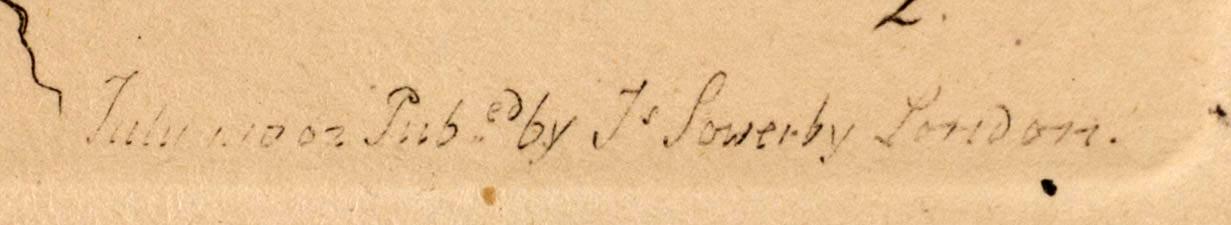 2.
July Pub.ed by Js Sowerby London.